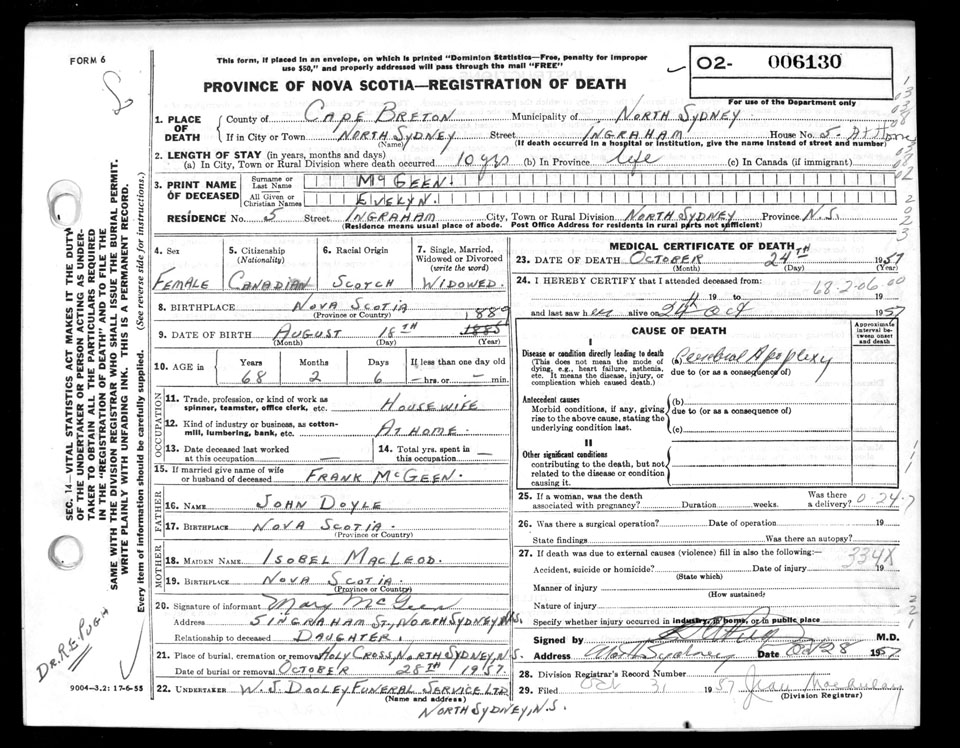 FORM 6
This form, if placed in an envelope, on which is printed "Dominion Statistics—Free, penalty for improper
use $50," and properly addressed will pass through the mail "FREE"
PROVINCE OF NOVA SCOTIA—REGISTRATION OF DEATH
O2- 006130
For use of the Department only
1. PLACE OF DEATH
County of CAPE BRETON Municipality of NORTH SYDNEY
If in City or Town NORTH SYDNEY Street INGRAHAM House No. 5- At Home
(Name) (If death occurred in a hospital or institution, give the name instead of street and number)
2. LENGTH OF STAY (in years, months and days)
(a) In City, Town or Rural Division where death occurred 10 yrs (b) In Province life (c) In Canada (if immigrant)
3. PRINT NAME OF DECEASED
Surname or Last Name McGEEN.
All Given or Christian Names EVELYN.
RESIDENCE No. 5 Street INGRAHAM City, Town or Rural Division NORTH SYDNEY Province N.S.
(Residence means usual place of abode. Post Office Address for residents in rural parts not sufficient)
4. Sex
FEMALE
5. Citizenship (Nationality)
CANADIAN
6. Racial Origin
SCOTCH
7. Single, Married, Widowed or Divorced (write the word)
WIDOWED.
8. BIRTHPLACE NOVA SCOTIA
(Province or Country)
9. DATE OF BIRTH AUGUST 18TH 1885 1889
(Month) (Day) (Year)
10. AGE in
Years Months Days If less than one day old
68 2 6 — hrs. or — min.
OCCUPATION
11. Trade, profession, or kind of work as spinner, teamster, office clerk, etc. HOUSEWIFE
12. Kind of industry or business, as cotton-mill, lumbering, bank, etc. AT HOME.
13. Date deceased last worked at this occupation —
14. Total yrs. spent in this occupation. —
15. If married give name of wife or husband of deceased FRANK McGEEN.
FATHER
16. NAME JOHN DOYLE
17. BIRTHPLACE NOVA SCOTIA.
(Province or Country)
MOTHER
18. MAIDEN NAME ISOBEL MacLEOD.
19. BIRTHPLACE NOVA SCOTIA.
(Province or Country)
20. Signature of informant Mary McGeen
Address 5 INGRAHAM ST., NORTH SYDNEY N.S.
Relationship to deceased DAUGHTER.
21. Place of burial, cremation or removal HOLY CROSS, NORTH SYDNEY, N.S.
Date of burial or removal OCTOBER 28TH 1957
22. UNDERTAKER W. J. DOOLEY FUNERAL SERVICE LTD
(Name and address)
NORTH SYDNEY, N.S.
MEDICAL CERTIFICATE OF DEATH
23. DATE OF DEATH OCTOBER 24TH 1957
(Month) (Day) (Year)
24. I HEREBY CERTIFY that I attended deceased from:
68-2-06 00
19 to 19
and last saw her alive on 24th Oct 1957
CAUSE OF DEATH
Approximate interval between onset and death
I
Disease or condition directly leading to death
(This does not mean the mode of dying, e.g., heart failure, asthenia, etc. It means the disease, injury, or complication which caused death.)
(a) Cerebral Apoplexy
due to (or as a consequence of)
Antecedent causes
Morbid conditions, if any, giving rise to the above cause, stating the underlying condition last.
(b)
due to (or as a consequence of)
(c)
II
Other significant conditions
contributing to the death, but not related to the disease or condition causing it.
25. If a woman, was the death associated with pregnancy? Duration weeks. Was there a delivery? 0-24-7
26. Was there a surgical operation? Date of operation 19
State findings Was there an autopsy?
27. If death was due to external causes (violence) fill in also the following:— 334X
Accident, suicide or homicide? Date of injury 19
(State which)
Manner of injury
(How sustained)
Nature of injury
Specify whether injury occurred in industry, in home, or in public place
Signed by M.D.
Address North Sydney Date Oct 28 1957
28. Division Registrar's Record Number
29. Filed Oct 31 1957
(Division Registrar)
SEC. 14—VITAL STATISTICS ACT MAKES IT THE DUTY
OF THE UNDERTAKER OR PERSON ACTING AS UNDER-
TAKER TO OBTAIN ALL THE PARTICULARS REQUIRED
IN THE "REGISTRATION OF DEATH" AND TO FILE THE
SAME WITH THE DIVISION REGISTRAR WHO SHALL ISSUE THE BURIAL PERMIT.
WRITE PLAINLY WITH UNFADING INK. THIS IS A PERMANENT RECORD.
Every item of information should be carefully supplied. (See reverse side for instructions.)
DR. R.E. PUGH
9004—3.2: 17-6-55